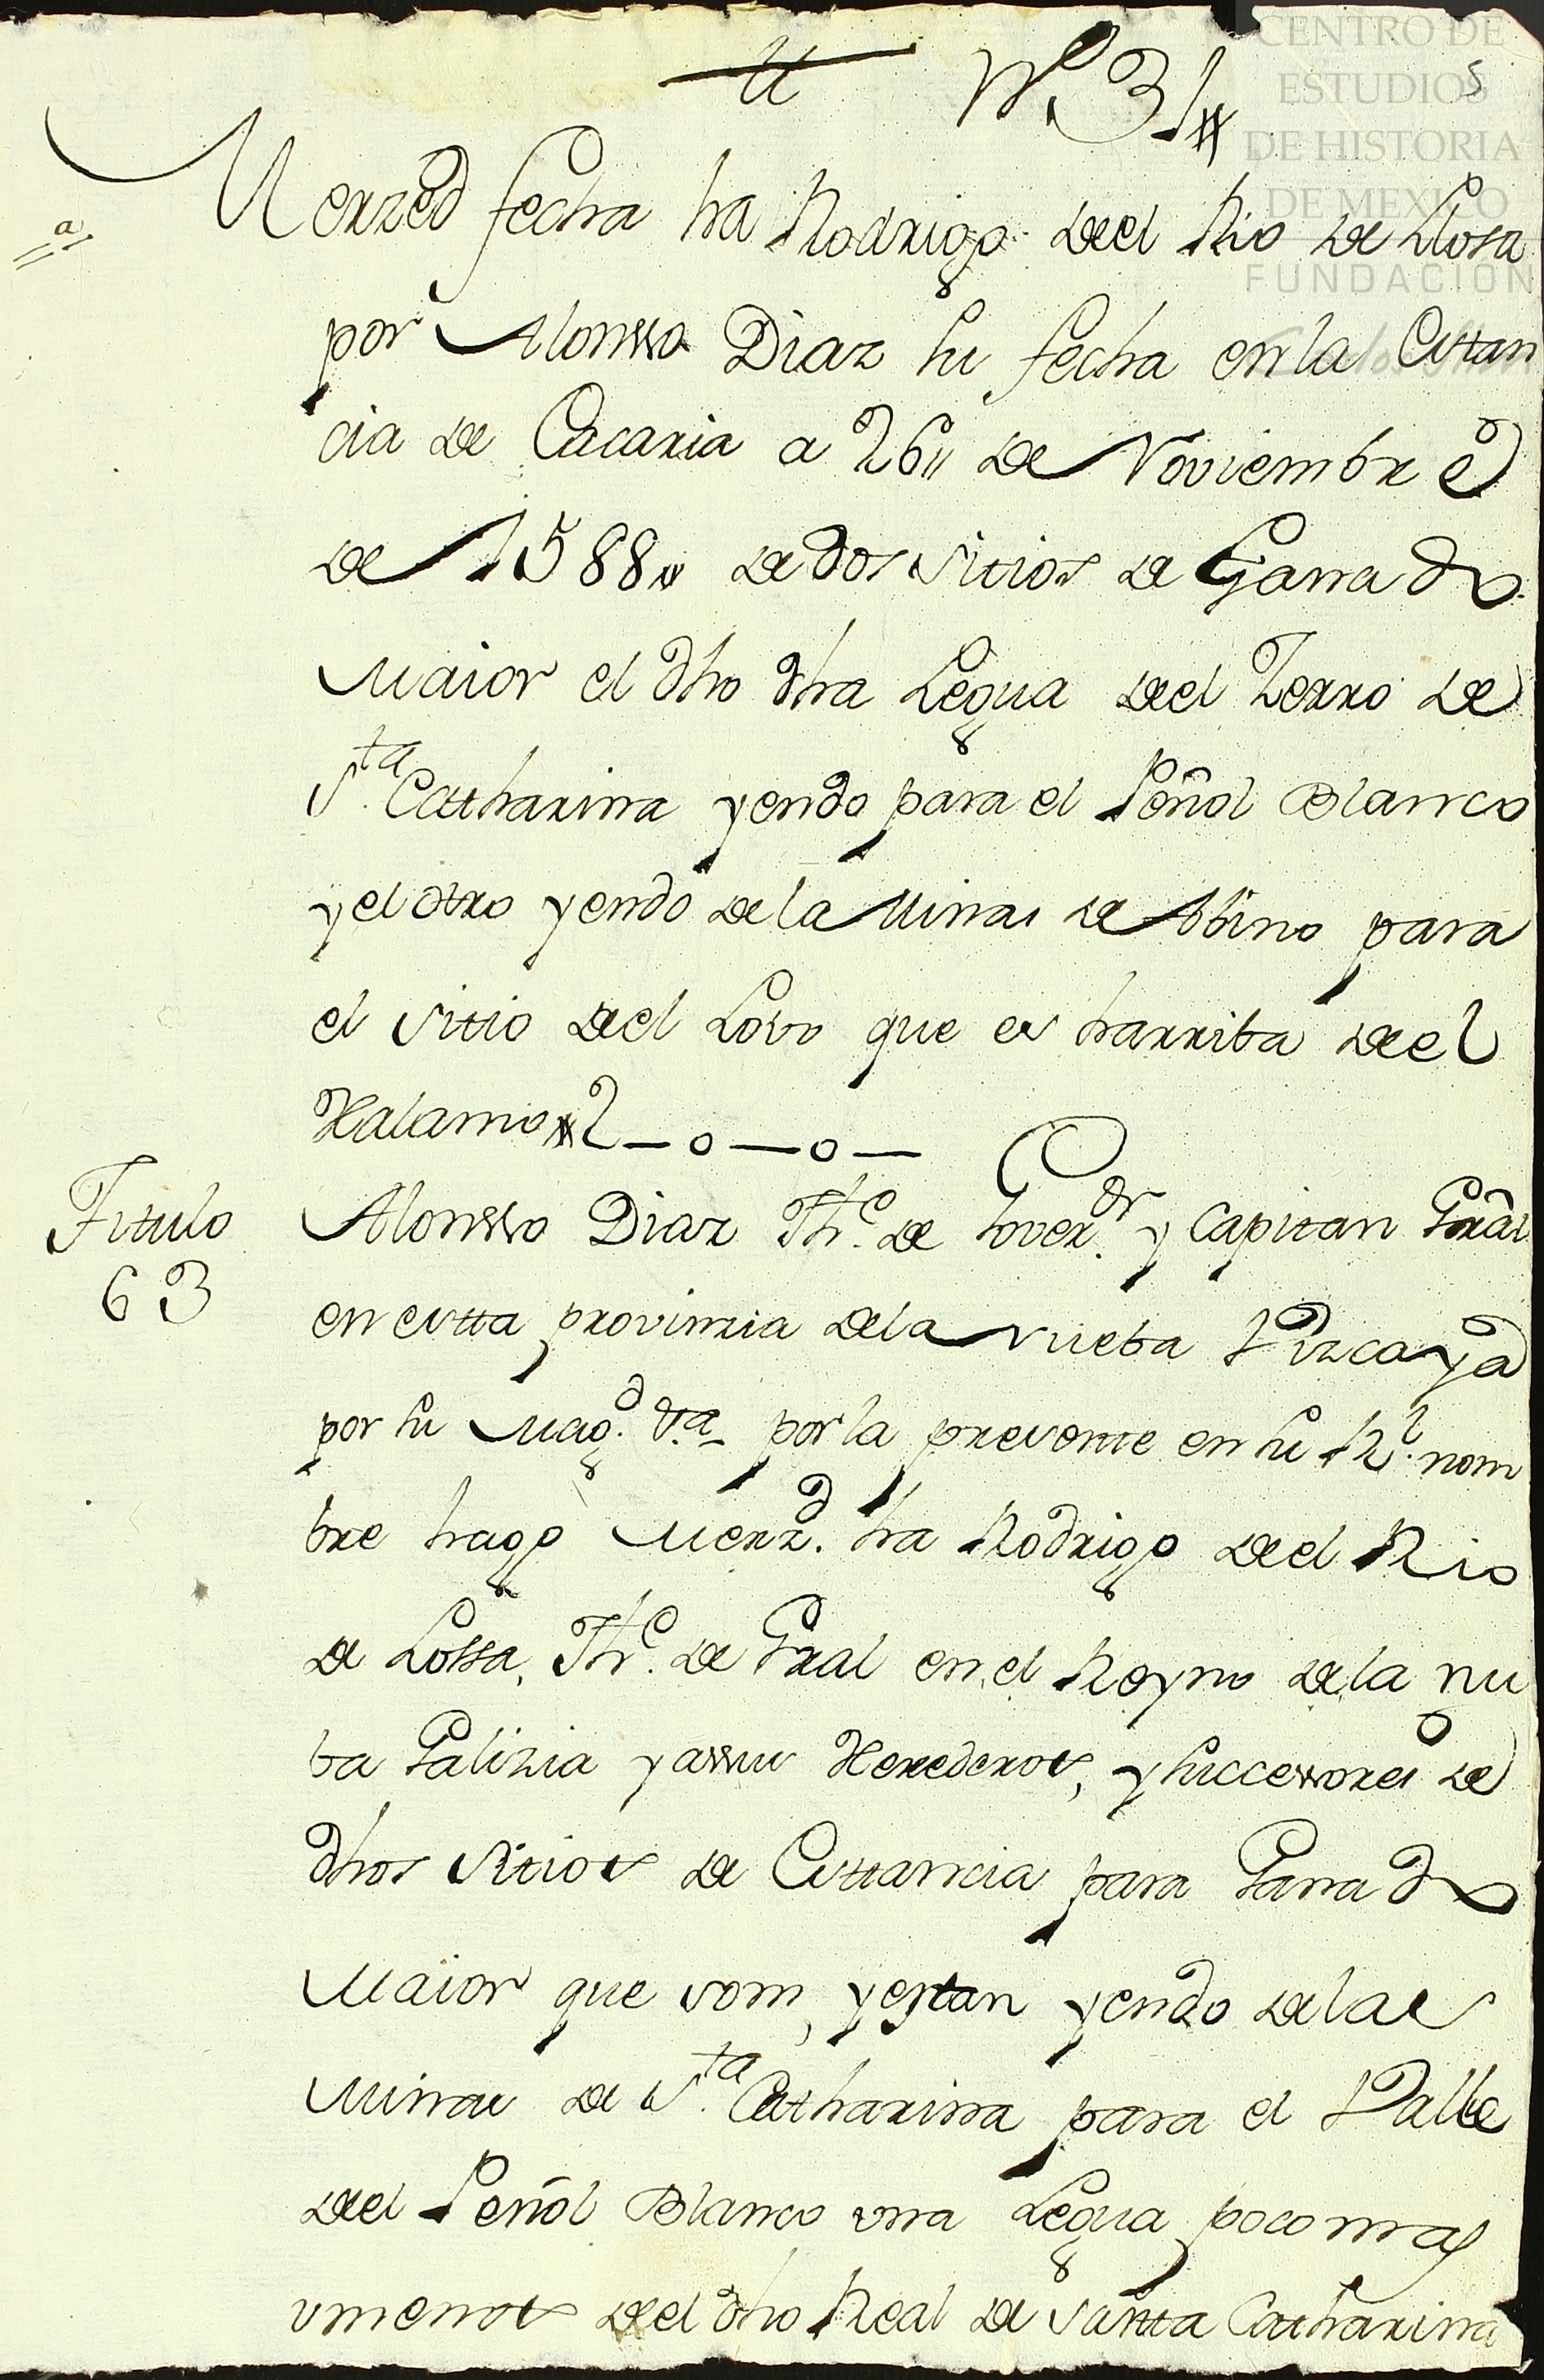 CENTRO DE
ESTUDIOS
DE HISTORIA
DE MEXICO
FUNDACIÓN
5
Nº 31
Merzed fecha ha Rodrigo del Rio de Llosa
por Alonsso Diaz su fecha en la Esttan
cia de Cacaria a 26 de Noviembre
de 1588 de dos sitios de Ganado
maior el dho dha Legua del Zerro de
Sta. Catharina yendo para el Peñol Blanco
y el otro yendo de la Minas de Abino para
el sitio del Lobo que es harriba del
Xalamo
Titulo
63
Alonsso Diaz The. de Gover.dr y Capitan Grâl
en estta provinzia de la nueba Vizcaya
por su Mag.d Va. por la presente en su Rl. nom
bre hago Merz.d ha Rodrigo del Rio
de Lossa, The. de Gral en el Reyno de la nu
ba Galizia y assus Herederos, y successores de
dhos sitios de Esttancia para Ganado
Maior que som, y estan yendo de las
Minas de Sta. Catharina para el Valle
del Peñol Blanco una Legua poco mas
umenos del dho Real de Santa Catharina